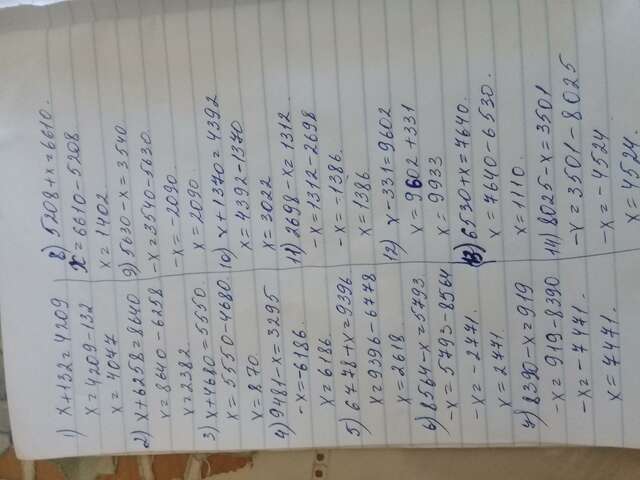 1) x+132=4209
x=4209-132
x=4047
2) x+6258=8640
x=8640-6258
x=2382
3) x+4680=5550.
x=5550-4680
x=870
4) 9481-x=3295
-x=-6186.
x=6186.
5) 6778+x=9396
x=9396-6778
x=2618
6) 8564-x=5793
-x=5793-8564
-x=-2771.
x=2771
7) 8390-x=919
-x=919-8390
-x=-7471.
x=7471.
8) 5208+x=6610.
x=6610-5208
x=1402
9) 5630-x=3540.
-x=3540-5630.
-x=-2090.
x=2090.
10) x+1370=4392
x=4392-1370
x=3022
11) 2698-x=1312.
-x=1312-2698
-x=-1386.
x=1386.
12) x-331=9602
x=9602+331
x=9933
13) 6530+x=7640.
x=7640-6530.
x=1110.
14) 8025-x=3501
-x=3501-8025
-x=-4524
x=4524